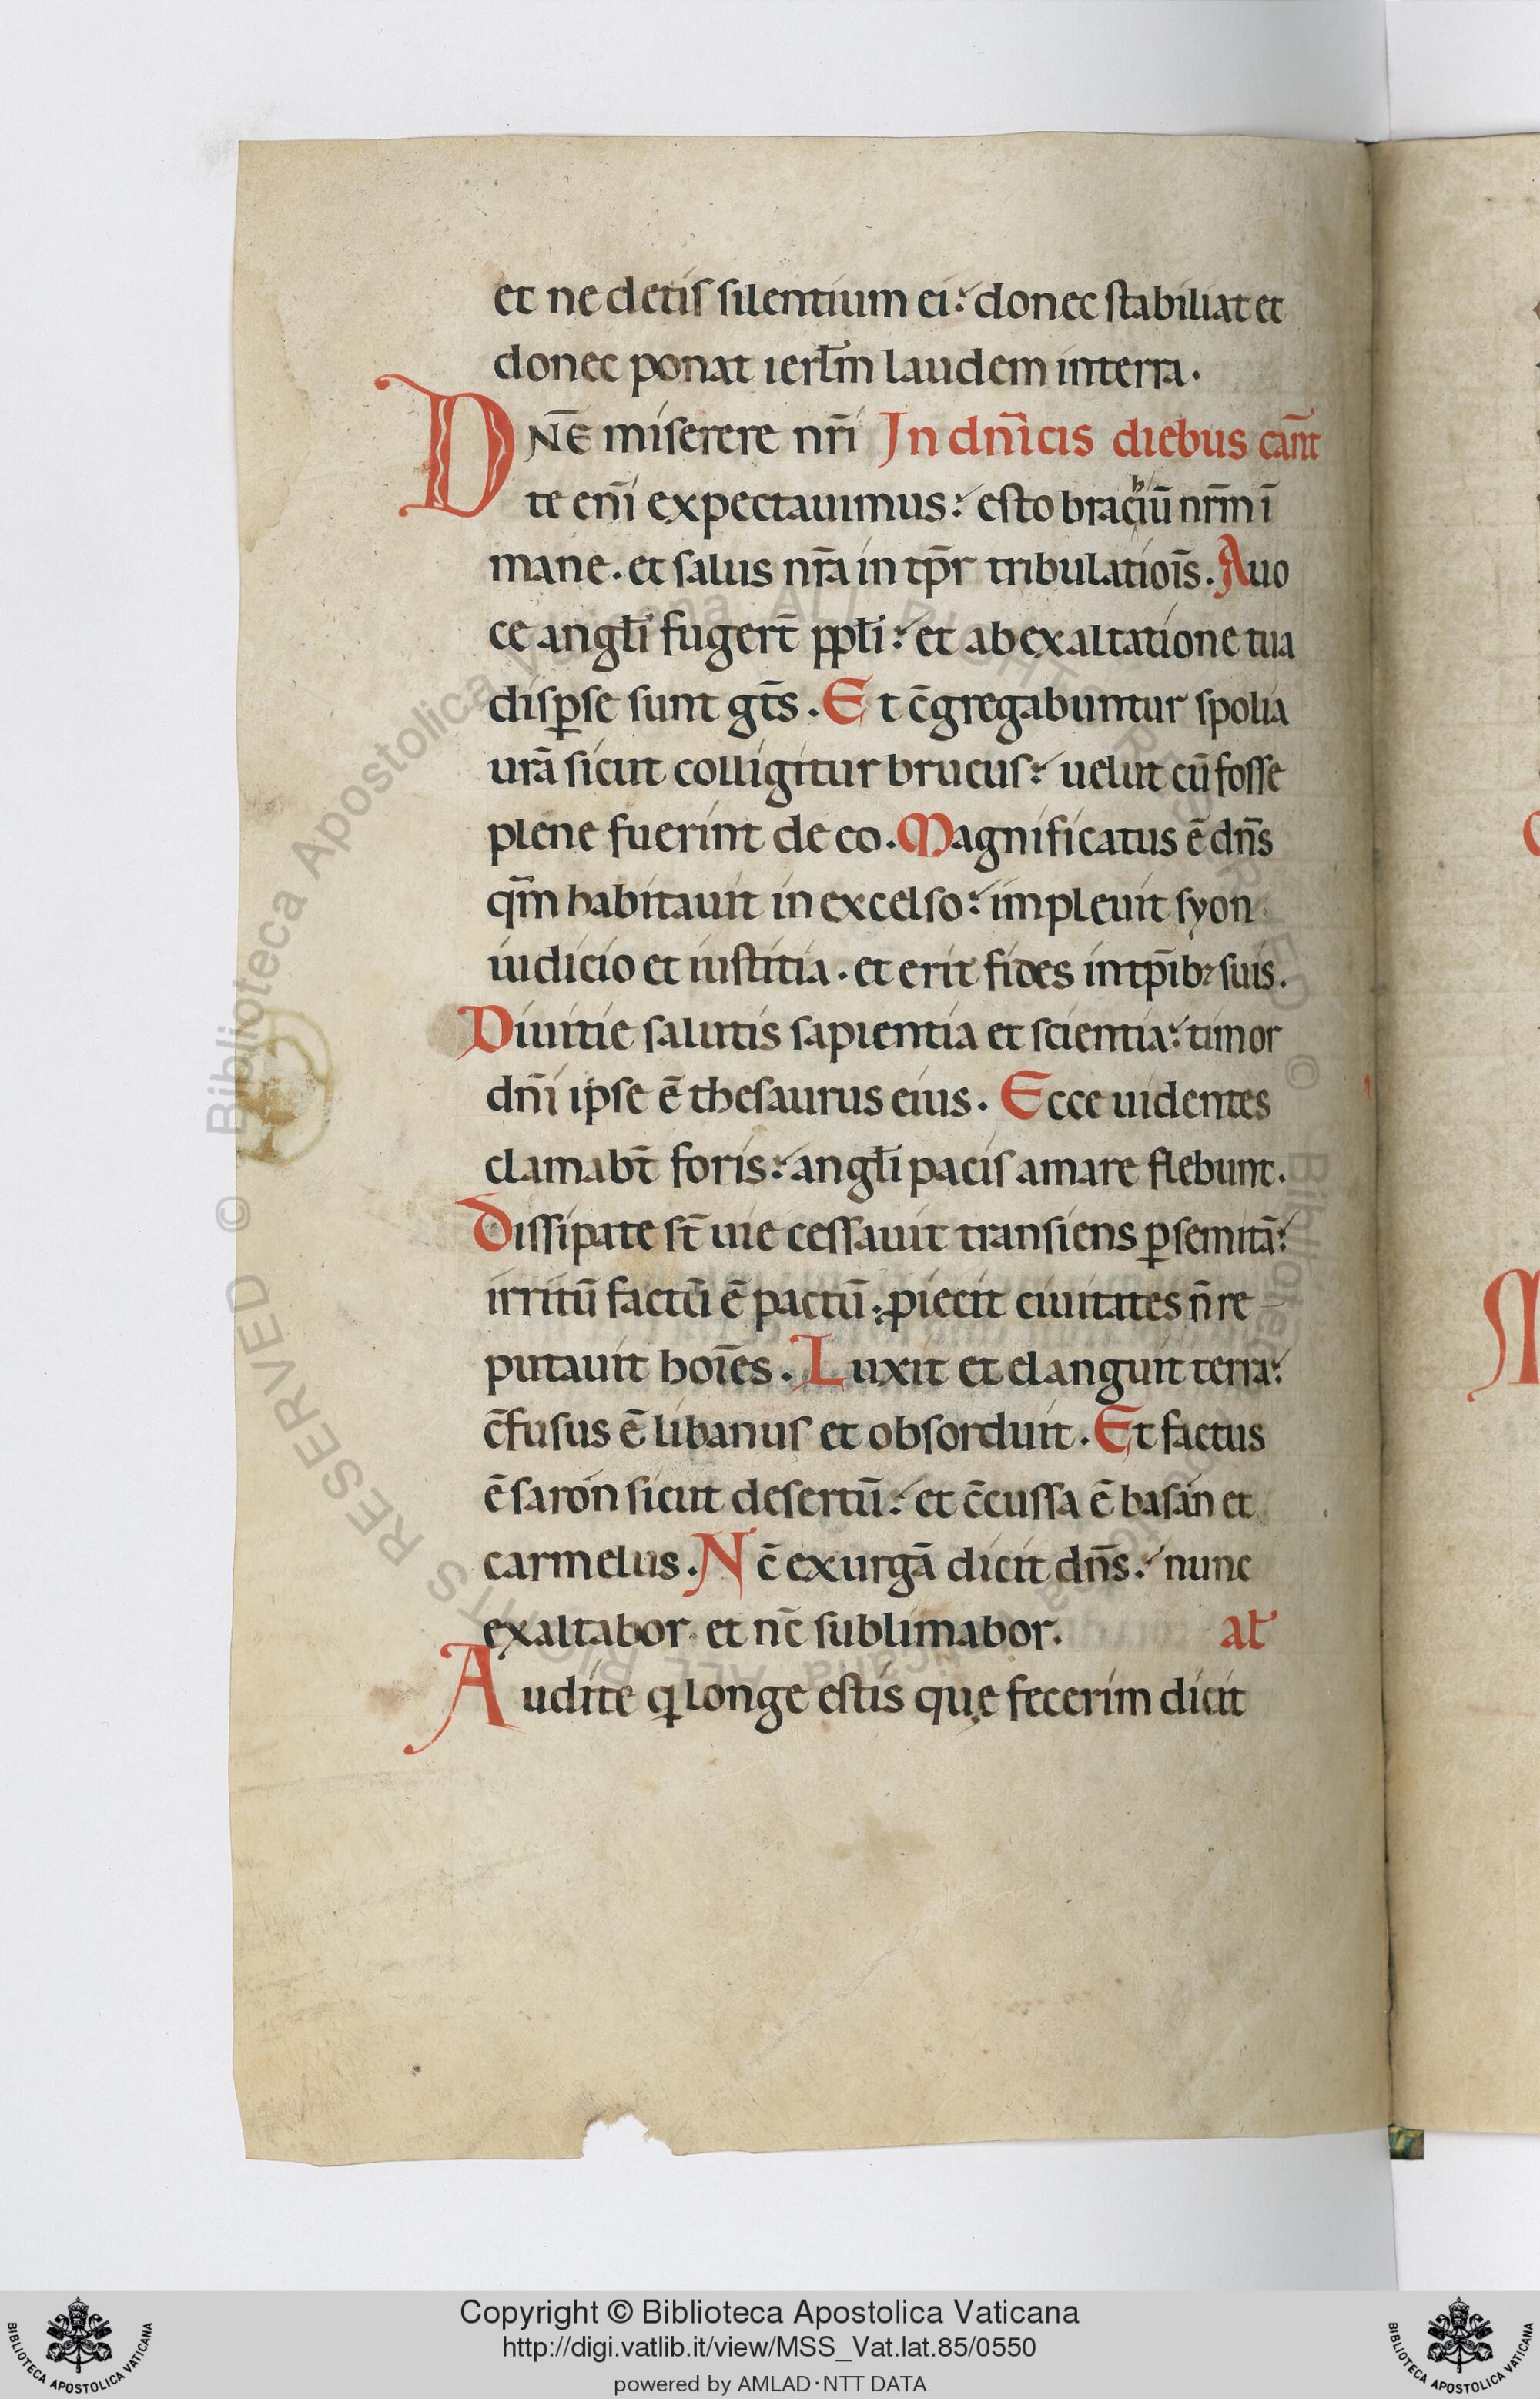 et ne detis silentium ei: donec stabiliat et
donec ponat ierłm laudem in terra.
DNE miserere nr̄i In dn̄icis diebus cant̄
te eni̅ expectauimus: esto brachiū nrm̄ ī
mane. et salus nr̄a in tp̄r tribulatiōis. A uo
ce angłi fugert̄ ppłi: et ab exaltatione tua
disꝑse sunt gt̄s. Et c̄gregabuntur spolia
urā sicut colligitur brucus: uelut cū fosse
plene fuerint de eo. Magnificatus ē dn̄s
qm̄ habitauit in excelso: impleuit syon
iudicio et iustitia. et erit fides in tp̄ib; suis.
Diuitie salutis sapientia et scientia: timor
dn̄i ipse ē thesaurus eius. Ecce uidentes
clamabt̄ foris: angłi pacis amare flebunt.
Dissipate st̄ uie cessauit transiens ꝑ semitā:
irritū factū ē pactū: ꝓiecit ciuitates n̄ re
putauit hoīes. Luxit et elanguit terra:
c̄fusus ē libanus et obsorduit. Et factus
ē saron sicut desertū: et c̄cussa ē basan et
carmelus. Nc̄ exurgā dicit dn̄s: nunc
exaltabor et nc̄ sublimabor. ał
Audite q longe estis que fecerim dicit
Copyright © Biblioteca Apostolica Vaticana
http://digi.vatlib.it/view/MSS_Vat.lat.85/0550
powered by AMLAD·NTT DATA
BIBLIOTECA APOSTOLICA VATICANA
BIBLIOTECA APOSTOLICA VATICANA